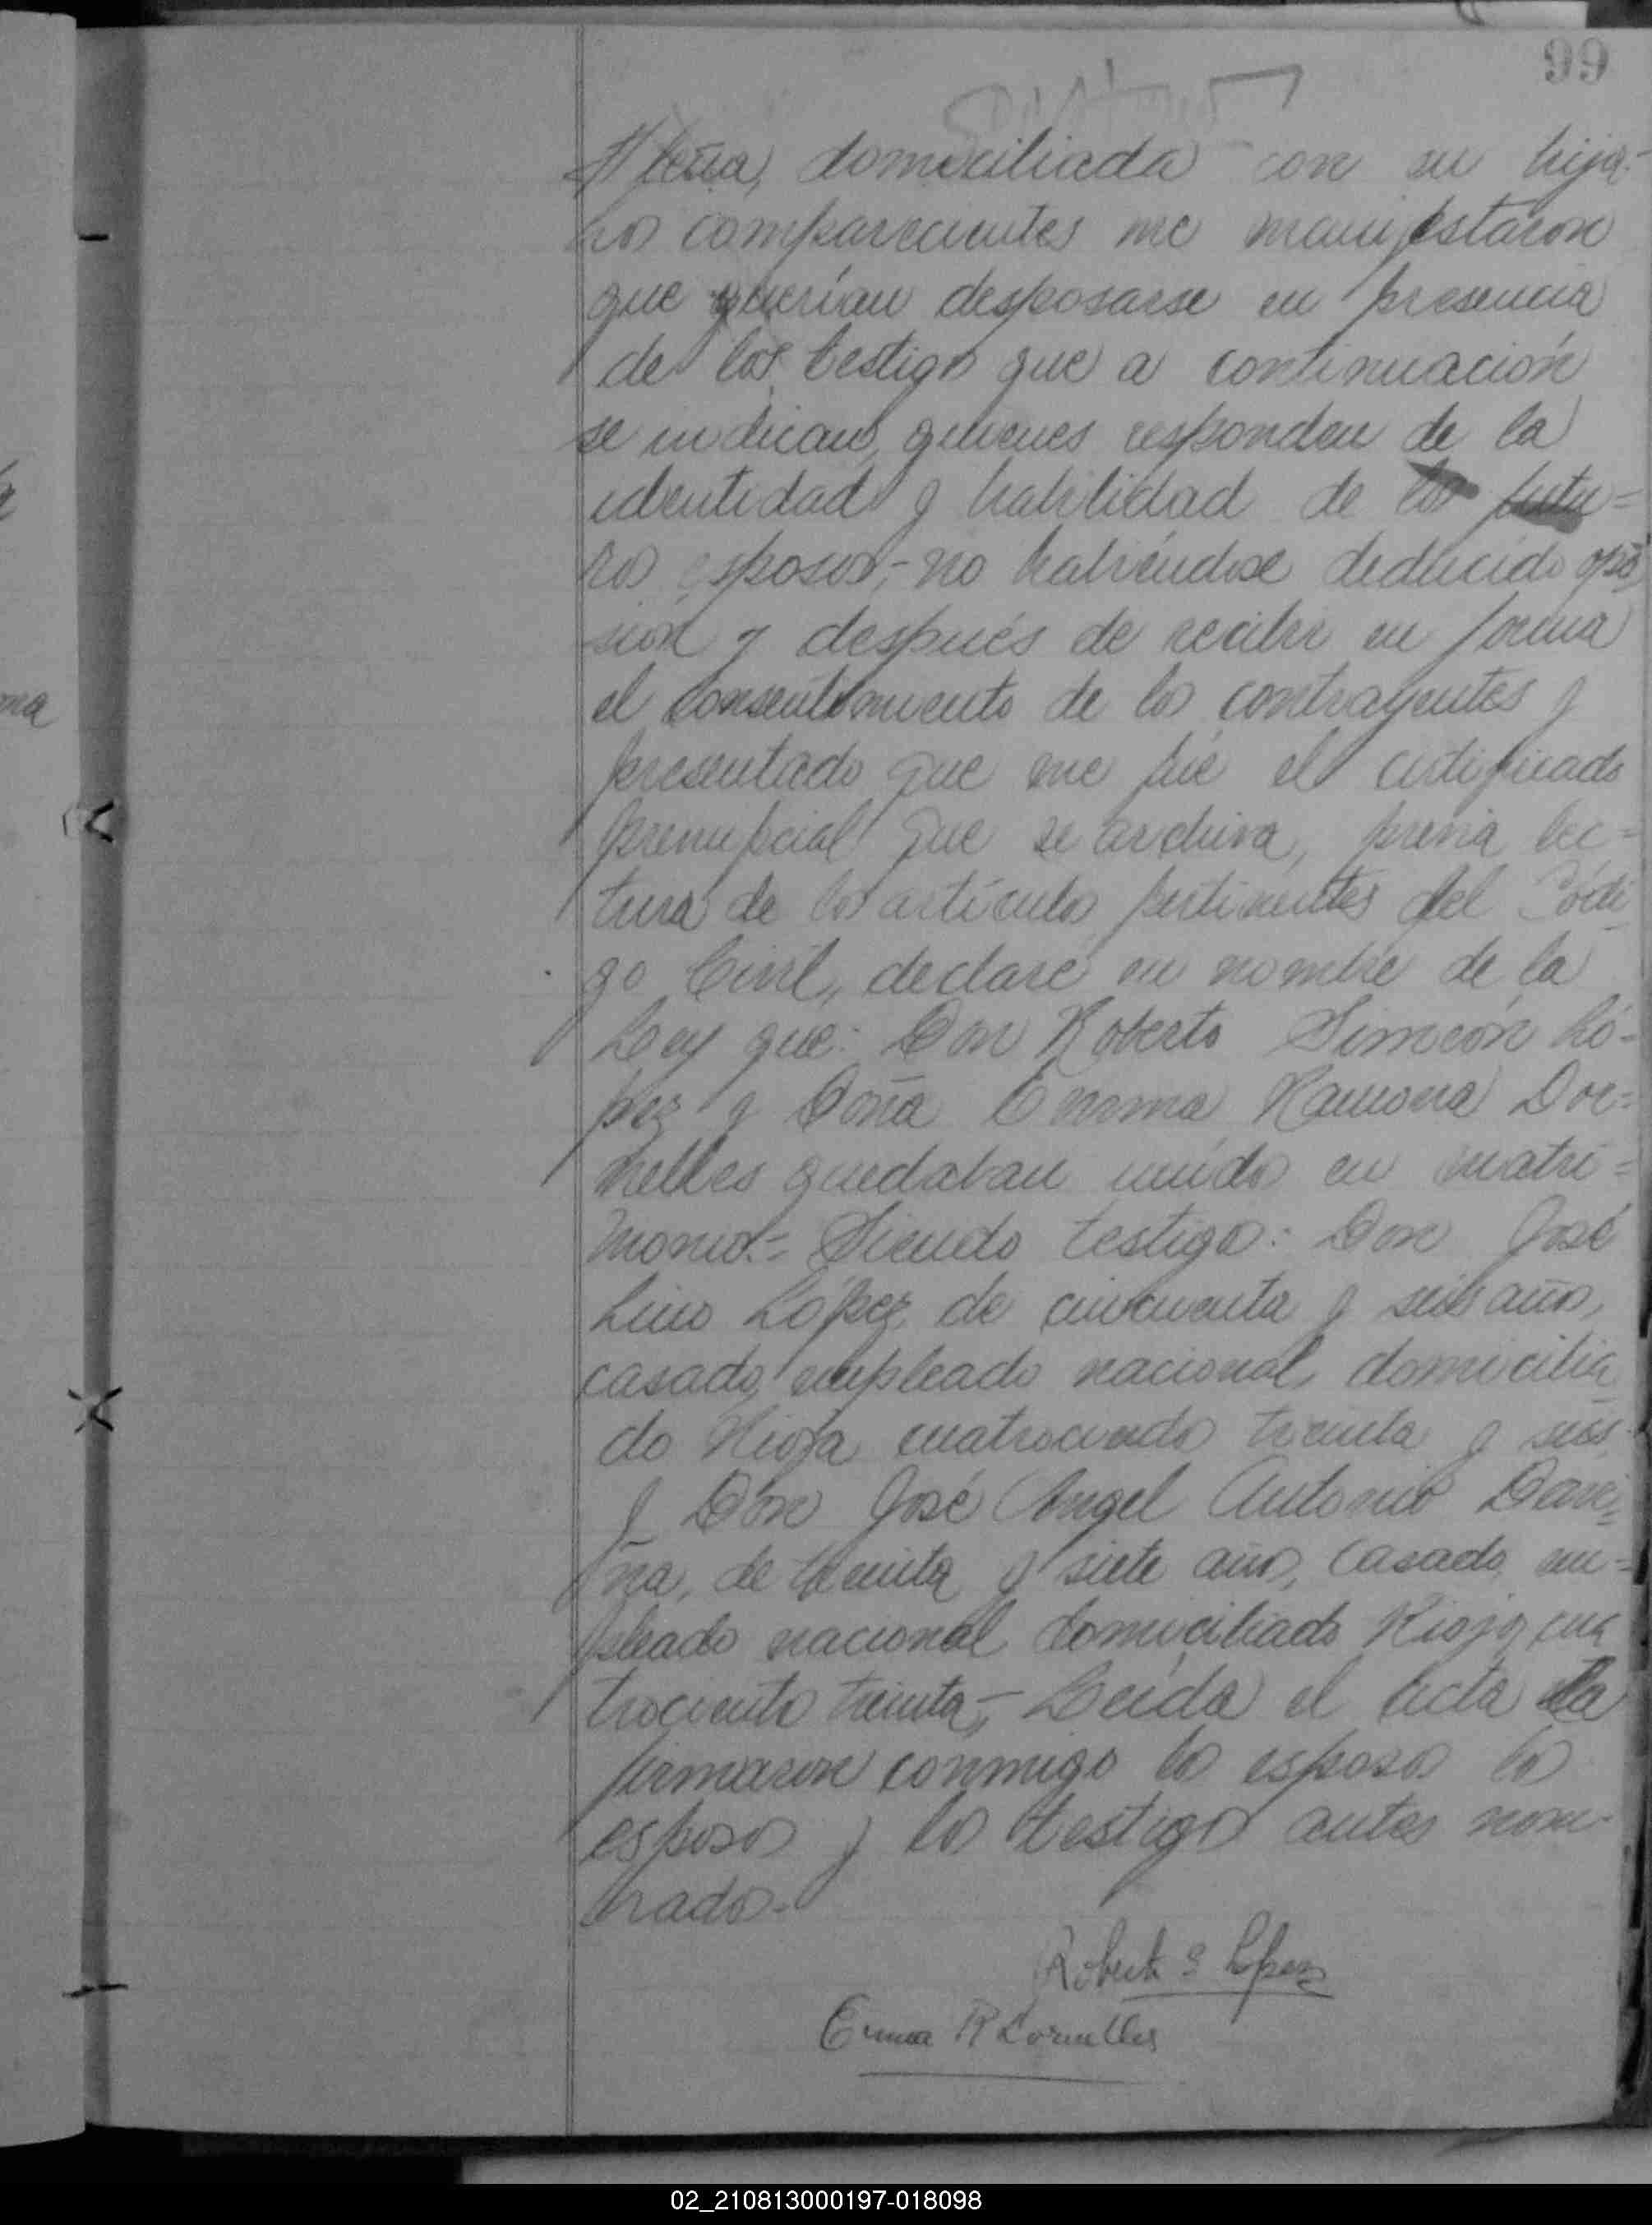 99
domiciliada con su hija.-
Los comparecientes me manifestaron
que querían desposarse en presencia
de los testigos que a continuación
se indican, quienes responden de la
identidad y habilidad de los futu=
ros esposos;- no habiéndose deducido opo
sición y después de recibir en forma
el consentimiento de los contrayentes y
presentado que me fué el certificado
prenupcial que se archiva, previa lec=
tura de los artículos pertinentes del Códi
go Civil, declaré en nombre de la
Ley que: Don Roberto Simeón Ló-
pez y Doña Emma Ramona Dor=
nelles quedaban unidos en matri=
monio.= Siendo testigos: Don José
Lino López, de cincuenta y seis años,
casado, empleado nacional, domicilia
do Rioja cuatrocientos treinta y seis
y Don José Angel Antonio
na, de treinta y siete años, casado, em=
pleado nacional domiciliado Rioja cua
trocientos treinta,- Leída el acta la
firmaron conmigo los esposos los
esposos y los testigos antes nom-
brados.-
Roberto S López
Emma R Dornelles
02_210813000197-018098